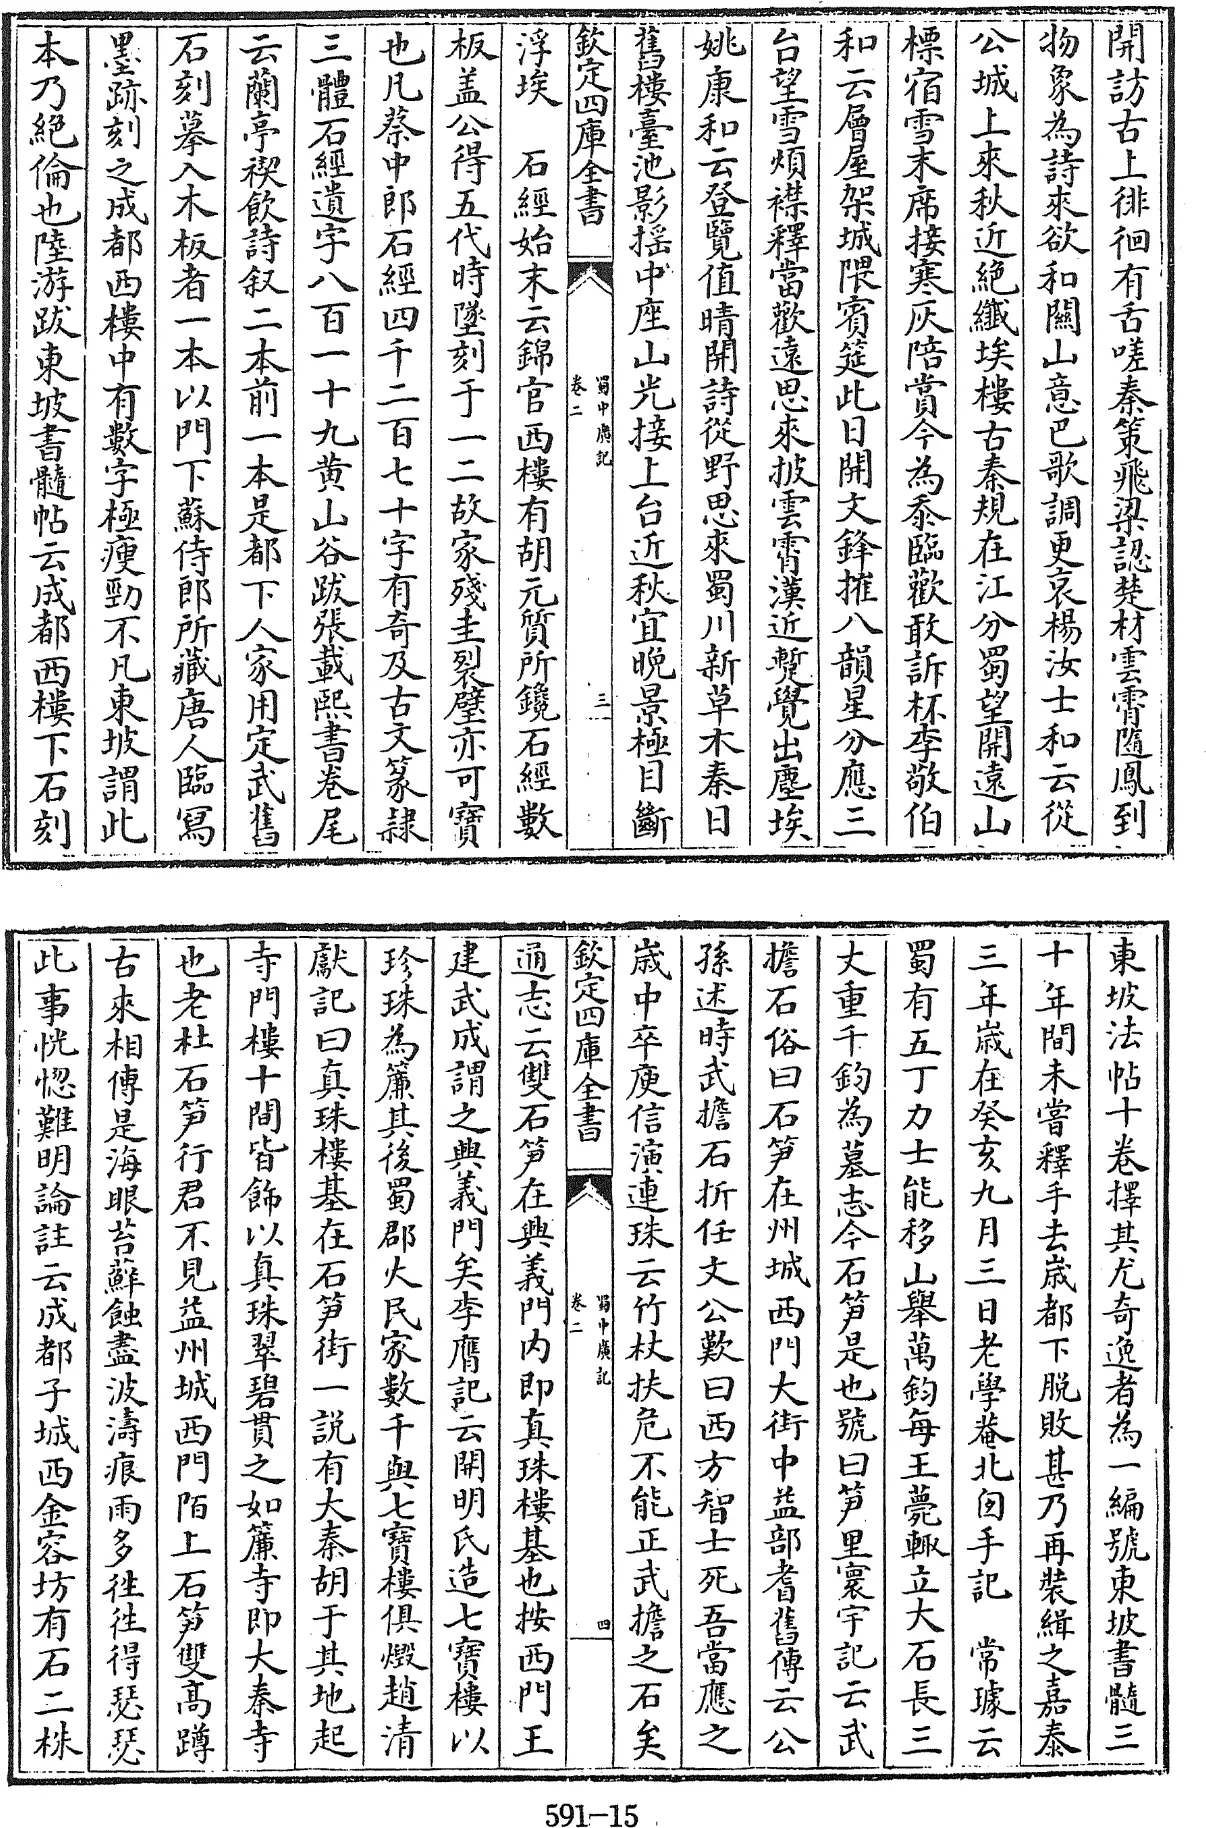 開訪古上徘徊有舌嗟秦策飛梁認楚材雲霄隨鳳到
物象為詩來欲和關山意巴歌調更哀楊汝士和云從
公城上來秋近絶纖埃樓古秦規在江分蜀望開遠山
標宿雪末席接寒灰陪賞今為忝臨歡敢訴杯李敬伯
和云層屋架城隈賓筵此日開文鋒摧八韻星分應三
台望雪煩襟釋當歡遠思來披雲霄漢近蹔覺出塵埃
姚康和云登覽值晴開詩從野思來蜀川新草木秦日
舊樓臺池影揺中座山光接上台近秋宜晩景極目斷
欽定四庫全書
蜀中廣記
卷二
三
浮埃　石經始末云錦官西樓有胡元質所鑱石經數
板盖公得五代時墜刻于一二故家殘圭裂璧亦可寶
也凡蔡中郎石經四千二百七十字有奇及古文篆隷
三體石經遺字八百一十九黄山谷跋張載熙書卷尾
云蘭亭禊飲詩叙二本前一本是都下人家用定武舊
石刻摹入木板者一本以門下蘇侍郎所藏唐人臨寫
墨跡刻之成都西樓中有數字極瘦勁不凡東坡謂此
本乃絶倫也陸游跋東坡書髓帖云成都西樓下石刻
東坡法帖十卷擇其尤奇逸者為一編號東坡書髓三
十年間未嘗釋手去歳都下脱敗甚乃再裝緝之嘉泰
三年歳在癸亥九月三日老學菴北囱手記　常璩云
蜀有五丁力士能移山舉萬鈞每王薨輙立大石長三
丈重千鈞為墓志今石笋是也號曰笋里寰宇記云武
擔石俗曰石笋在州城西門大街中益部耆舊傳云公
孫述時武擔石折任文公歎曰西方智士死吾當應之
歳中卒庾信演連珠云竹杖扶危不能正武擔之石矣
欽定四庫全書
蜀中廣記
卷二
四
通志云雙石笋在興義門内即真珠樓基也按西門王
建武成謂之興義門矣李膺記云開明氏造七寶樓以
珍珠為簾其後蜀郡火民家數千與七寶樓俱燬趙清
獻記曰真珠樓基在石笋街一説有大秦胡于其地起
寺門樓十間皆飾以真珠翠碧貫之如簾寺即大秦寺
也老杜石笋行君不見益州城西門陌上石笋雙高蹲
古來相傳是海眼苔蘚蝕盡波濤痕雨多徃徃得瑟瑟
此事恍惚難明論註云成都子城西金容坊有石二株
591-15